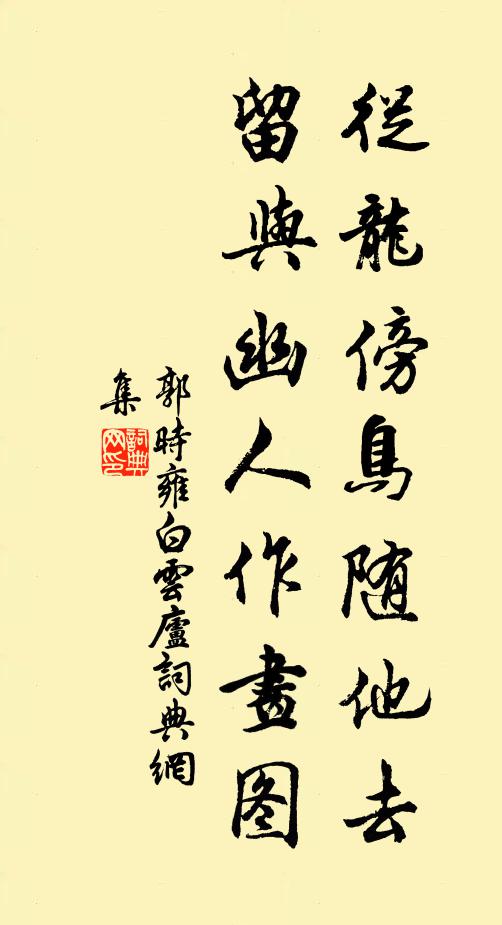 從龍傍鳥随他去
留與幽人作畫图
郭時雍白雲廬詞典網
集
詞典
网印